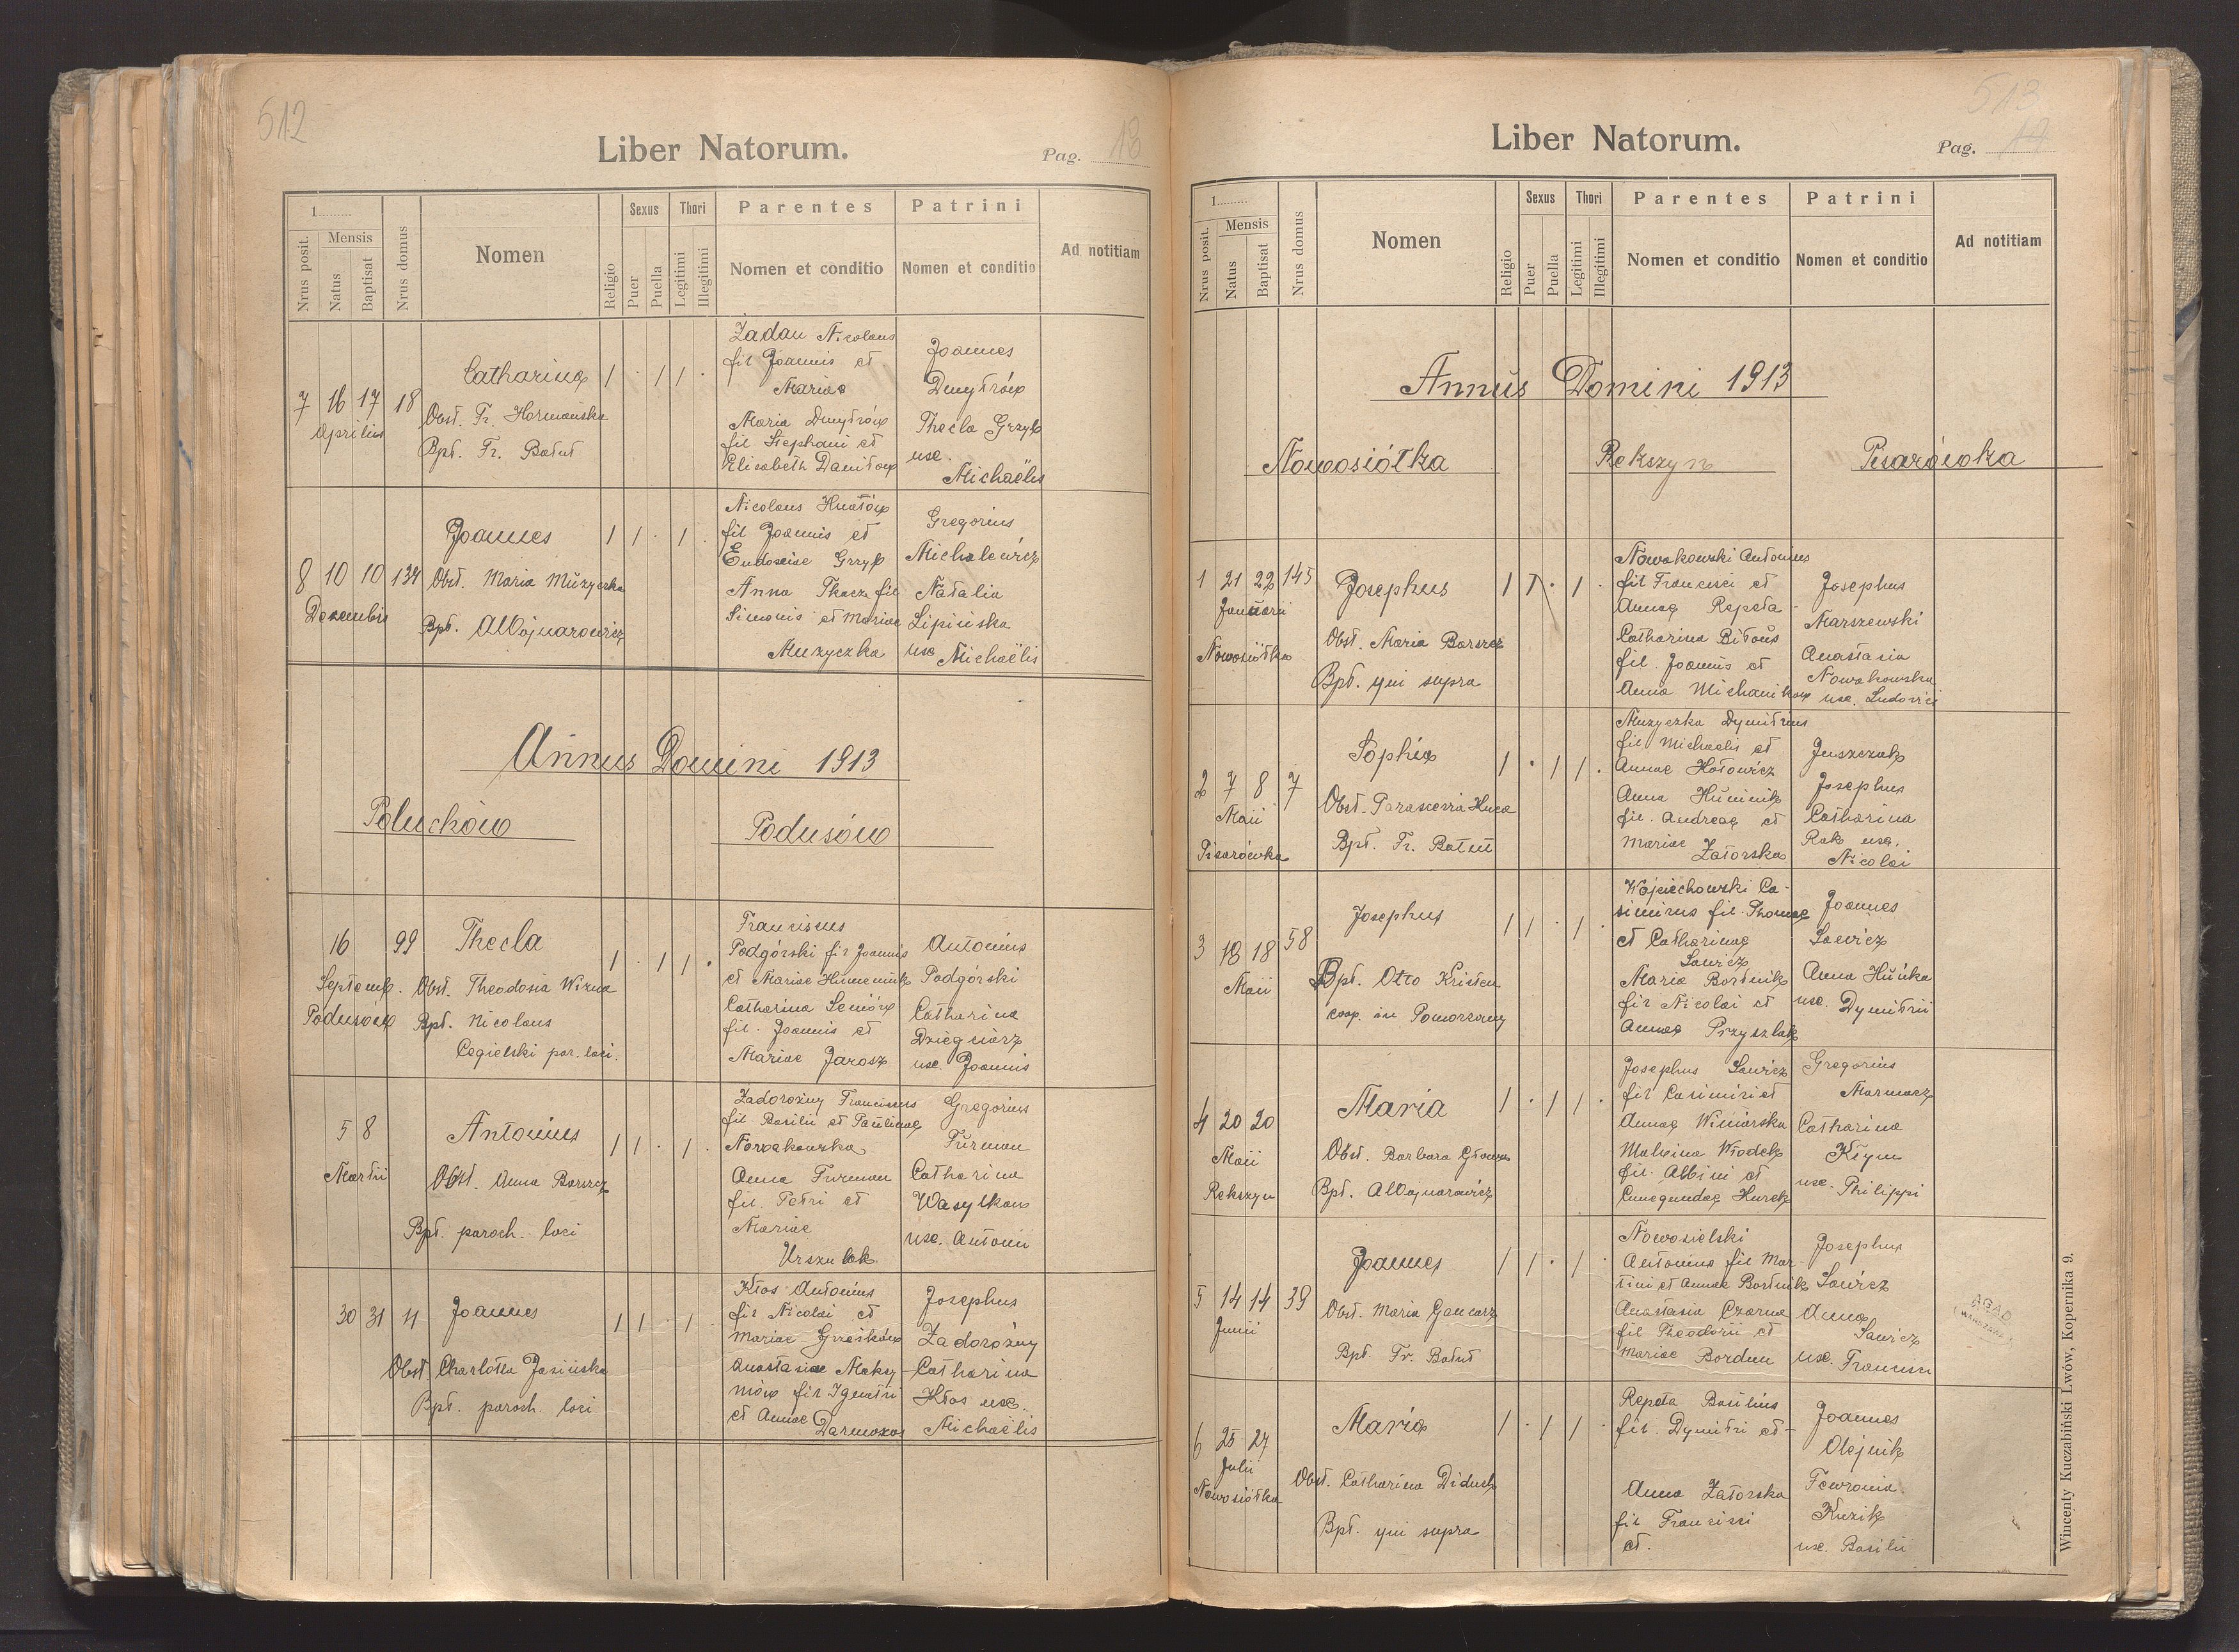 512
Liber Natorum.
Pag. 18
1.........
Nrus posit.
Mensis
Natus
Baptisat
Nrus domus
Nomen
Religio
Sexus
Puer
Puella
Thori
Legitimi
Illegitimi
Parentes
Nomen et conditio
Patrini
Nomen et conditio
Ad notitiam
7 16 17 18
Aprilis
Catharina
Obst. Fr. Hormańska
Bpt. Fr. Bałut
1 · 1 1 ·
Żadan Nicolaus
fil Joannis et
Mariae
Maria Dmytrów
fil Stephani et
Elisabeth Daniłow
Joannes
Dmytrów
Thecla Grzyb
uxe.
Michaëlis
8 10 10 134
Decembris
Joannes
Obst. Maria Muzyczka
Bpt. AWojnarowicz
1 1 · 1 ·
Nicolaus Hnatów
fil Joannis et
Eudoxiae Grzyb
Anna Tkacz fil
Simonis et Mariae
Muzyczka
Gregorius
Michalewicz
Natalia
Lipińska
uxe
Michaëlis
Annus Domini 1913
Poluchów
Podusów
16 99
Septemb.
Podusów
Thecla
Obst. Theodosia Wirna
Bpt. Nicolaus
Cegielski par. loci.
1 · 1 1 ·
Franciscus
Podgórski fil Joannis
et Mariae Humeniuk
Catharina Seniów
fil. Joannis et
Mariae Jarosz
Antonius
Podgórski
Catharina
Dzięgciarz
uxe. Joannis
5 8
Martii
Antonius
Obst. Anna Barszcz
Bpt. paroch. loci
1 1 · 1 ·
Zadorożny Franciscus
fil Basilii et Paulinae
Nowakowska
Anna Furman
fil. Petri et
Mariae
Urszulak
Gregorius
Furman
Catharina
Wasylkow
uxe. Antonii
30 31 11
Joannes
Obst. Charlotta Jasińska
Bpt. paroch. loci
1 1 · 1 ·
Kłos Antonius
fil Nicolai et
Mariae Greśków
Anastasiae Maksy-
mów fil Ignatii
et Annae
Darmoxos
Josephus
Zadorożny
Catharina
Kłos uxe.
Michaëlis
513
19
Liber Natorum.
Pag.
1.........
Nrus posit.
Mensis
Natus
Baptisat
Nrus domus
Nomen
Religio
Sexus
Puer
Puella
Thori
Legitimi
Illegitimi
Parentes
Nomen et conditio
Patrini
Nomen et conditio
Ad notitiam
Annus Domini 1913
Nowosiółka
Rekszyn
Pisarówka
1 21 22 145
Januarii
Nowosiółka
Josephus
Obst. Maria Barszcz
Bpt. qui supra
1 1 · 1 ·
Nowakowski Antonius
fil Francisci et
Annae Repeta
Catharina Biłous
fil. Joannis et
Anna Michanikow
Josephus
Marszewski
Anastasia
Nowakowska
uxe. Ludovici
2 7 8 7
Maii
Pisarówka
Sophia
Obst. Parascevia Huca
Bpt. Fr. Bałut
1 · 1 1 ·
Muzyczka Dymitrius
fil Michaelis et
Annae Hołowicz
Anna Huminik
fil. Andreae et
Mariae Zatorska
Juszczak
Josephus
Catharina
Rak uxe.
Nicolai
3 18 18 58
Maii
Josephus
Bpt. Otto Kristen
coop. in Pomorzany
1 1 · 1 ·
Wojciechowski Ca-
simirus fil. Thomae
et Catharinae
Sawicz
Maria Bortnik
fil Nicolai et
Annae Przyszlak
Joannes
Sawicz
Anna Huńka
uxe. Dymitrii
4 20 20
Maii
Rekszyn
Maria
Obst. Barbara Głowa
Bpt. AWojnarowicz
1 · 1 1 ·
Josephus Sawicz
fil Casimiri et
Annae Winiarska
Malvina Włodek
fil. Albini et
Cunegundae Hurek
Gregorius
Marmacz
Catharina
Kłym
uxe. Philippi
5 14 14 39
Junii
Joannes
Obst. Maria Goncarz
Bpt. Fr. Bałut
1 1 · 1 ·
Nowosielski
Antonius fil Mar-
tini et Annae Bortnik
Anastasia Czarna
fil Theodorii et
Mariae Bordun
Josephus
Sawicz
Anna
Sawicz
uxe. Francisci
AGAD
WARSZAWA
6 25 27
Julii
Nowosiółka
Maria
Obst. Catharina Diduch
Bpt. qui supra
1 · 1 1 ·
Repeta Basilius
fil. Dymitri et -
Anna Zatorska
fil Francisci
et.
Joannes
Olejnik
Fewronia
Kuzik
uxe. Basilii
Wincenty Kuczabiński Lwów, Kopernika 9.